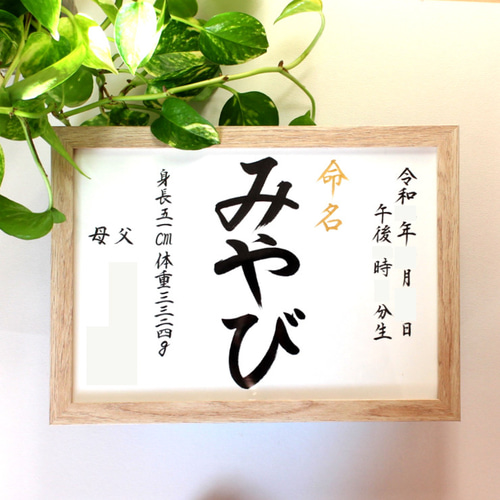 令和 年 月 日
午後 時 分生
命名
みやび
身長五一cm 体重三三二四g
父
母